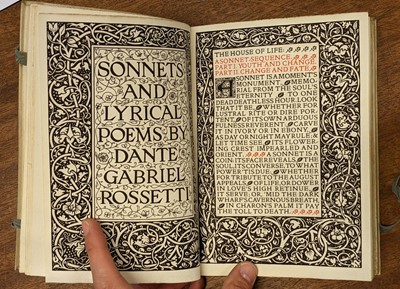 SONNETS
AND
LYRICAL
POEMS BY
DANTE
GABRIEL
ROSSETTI
THE HOUSE OF LIFE:
A SONNET-SEQUENCE.
PART I. YOUTH AND CHANGE
PART II. CHANGE AND FATE.
A SONNET IS A MOMENT'S
MONUMENT, MEMO-
RIAL FROM THE SOUL'S
ETERNITY TO ONE
DEAD DEATHLESS HOUR. LOOK
THAT IT BE, WHETHER FOR
LUSTRAL RITE OR DIRE POR-
TENT, OF ITS OWN ARDUOUS
FULNESS REVERENT: CARVE
IT IN IVORY OR IN EBONY,
AS DAY OR NIGHT MAY RULE; &
LET TIME SEE ITS FLOWER-
ING CREST IMPEARLED AND
ORIENT. A SONNET IS A
COIN: ITS FACE REVEALS THE
SOUL, ITS CONVERSE, TO WHAT
POWER 'TIS DUE: WHETHER
FOR TRIBUTE TO THE AUGUST
APPEALS OF LIFE, OR DOWER
IN LOVE'S HIGH RETINUE,
IT SERVE, OR, 'MID THE DARK
WHARF'S CAVERNOUS BREATH,
IN CHARON'S PALM IT PAY
THE TOLL TO DEATH.